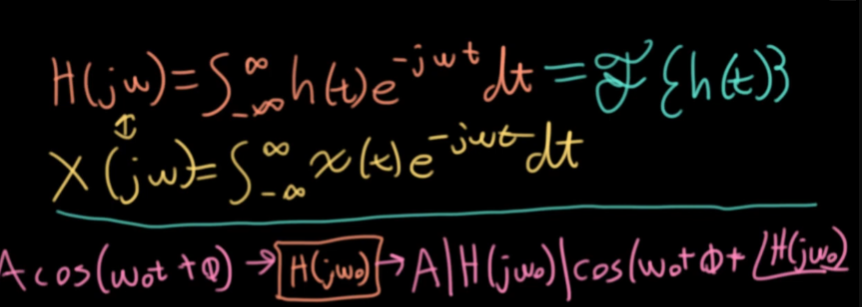 H(jω)=∫_{-∞}^{∞} h(t)e^{-jωt}dt = ℱ{h(t)}
X(jω)=∫_{-∞}^{∞} x(t)e^{-jωt}dt
A cos(ω₀t + φ) → H(jω₀) → A|H(jω₀)|cos(ω₀t φ + ∠H(jω₀)